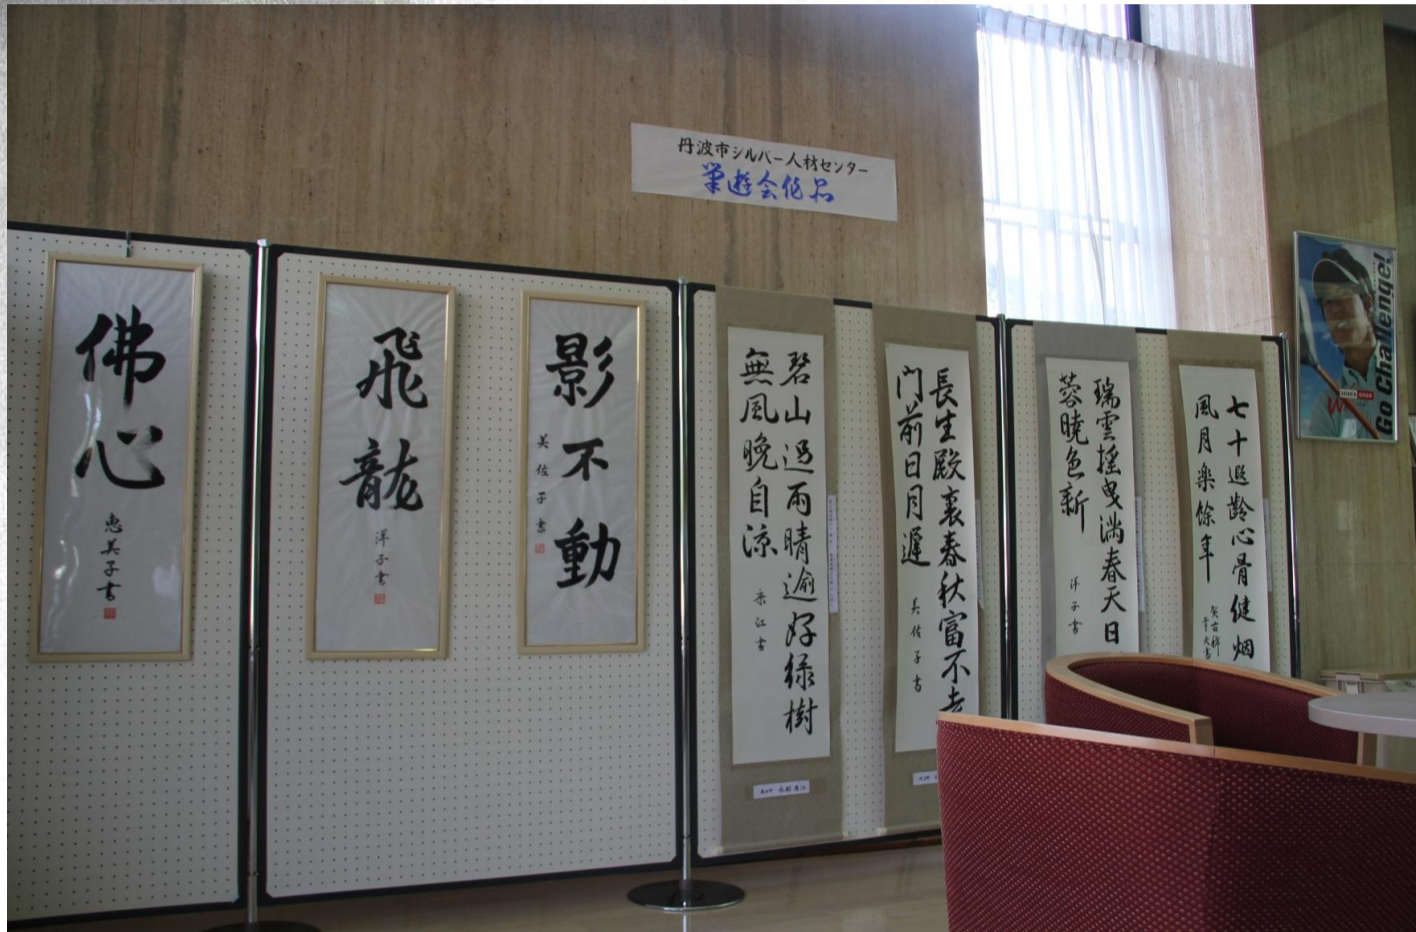 丹波市シルバー人材センター
筆遊会作品
佛心
恵美子書
飛龍
洋子書
影不動
美佐子書
碧山過雨晴逾好緑樹
無風晩自涼
長生殿裏春秋富不老
門前日月遅
美佐子書
瑞雲揺曳満春天日
蓉暁色新
洋子書
七十遐齢心骨健烟
風月楽餘年
Go Challenge!